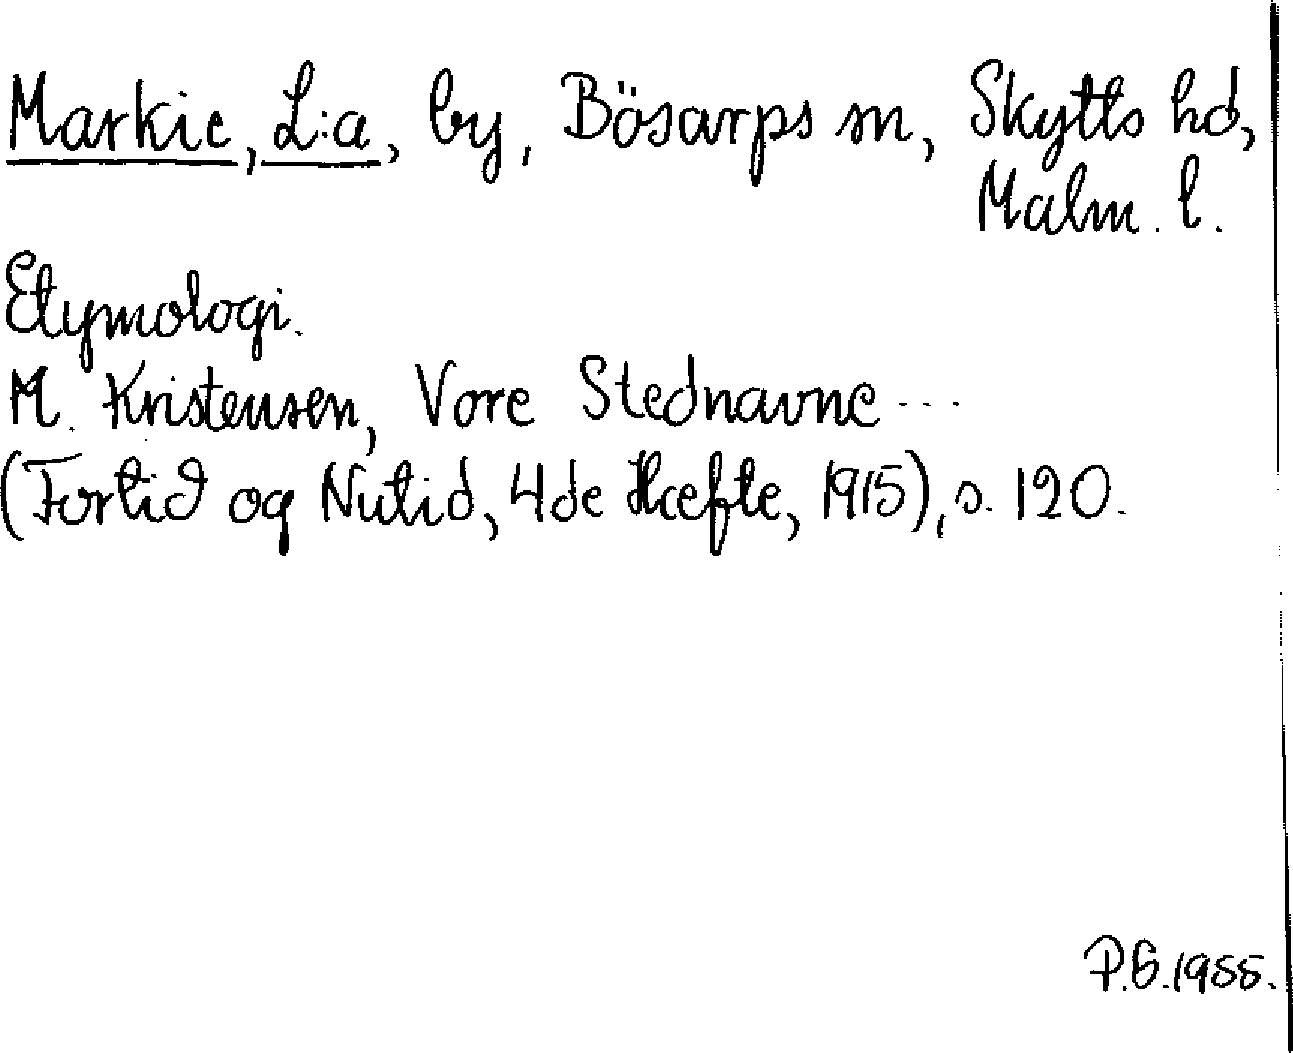 Markie, L:a, by, Bösarps sn, Skytts hd,
Malm. l.
Etymologi.
M. Kristensen, Vore Stednavne ...
(Fortid og Nutid, 4de Hæfte, 1915), s. 120.
P.G. 1955.